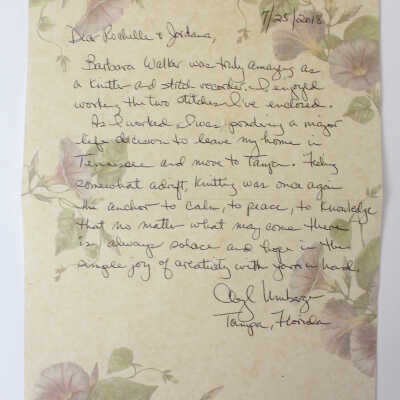 7/25/2018
Dear Rochelle & Jordana,
Barbara Walker was truly amazing as
a knitter and stitch recorder. I enjoyed
working the two stitches I've enclosed.
As I worked I was pondering a major
life decision to leave my home in
Tennessee and move to Tampa. Feeling
somewhat adrift, knitting was once again
the anchor to calm, to peace, to knowledge
that no matter what may come there
is always solace and hope in the
simple joy of creativity with yarn in hand.
Umbarger
Tampa, Florida